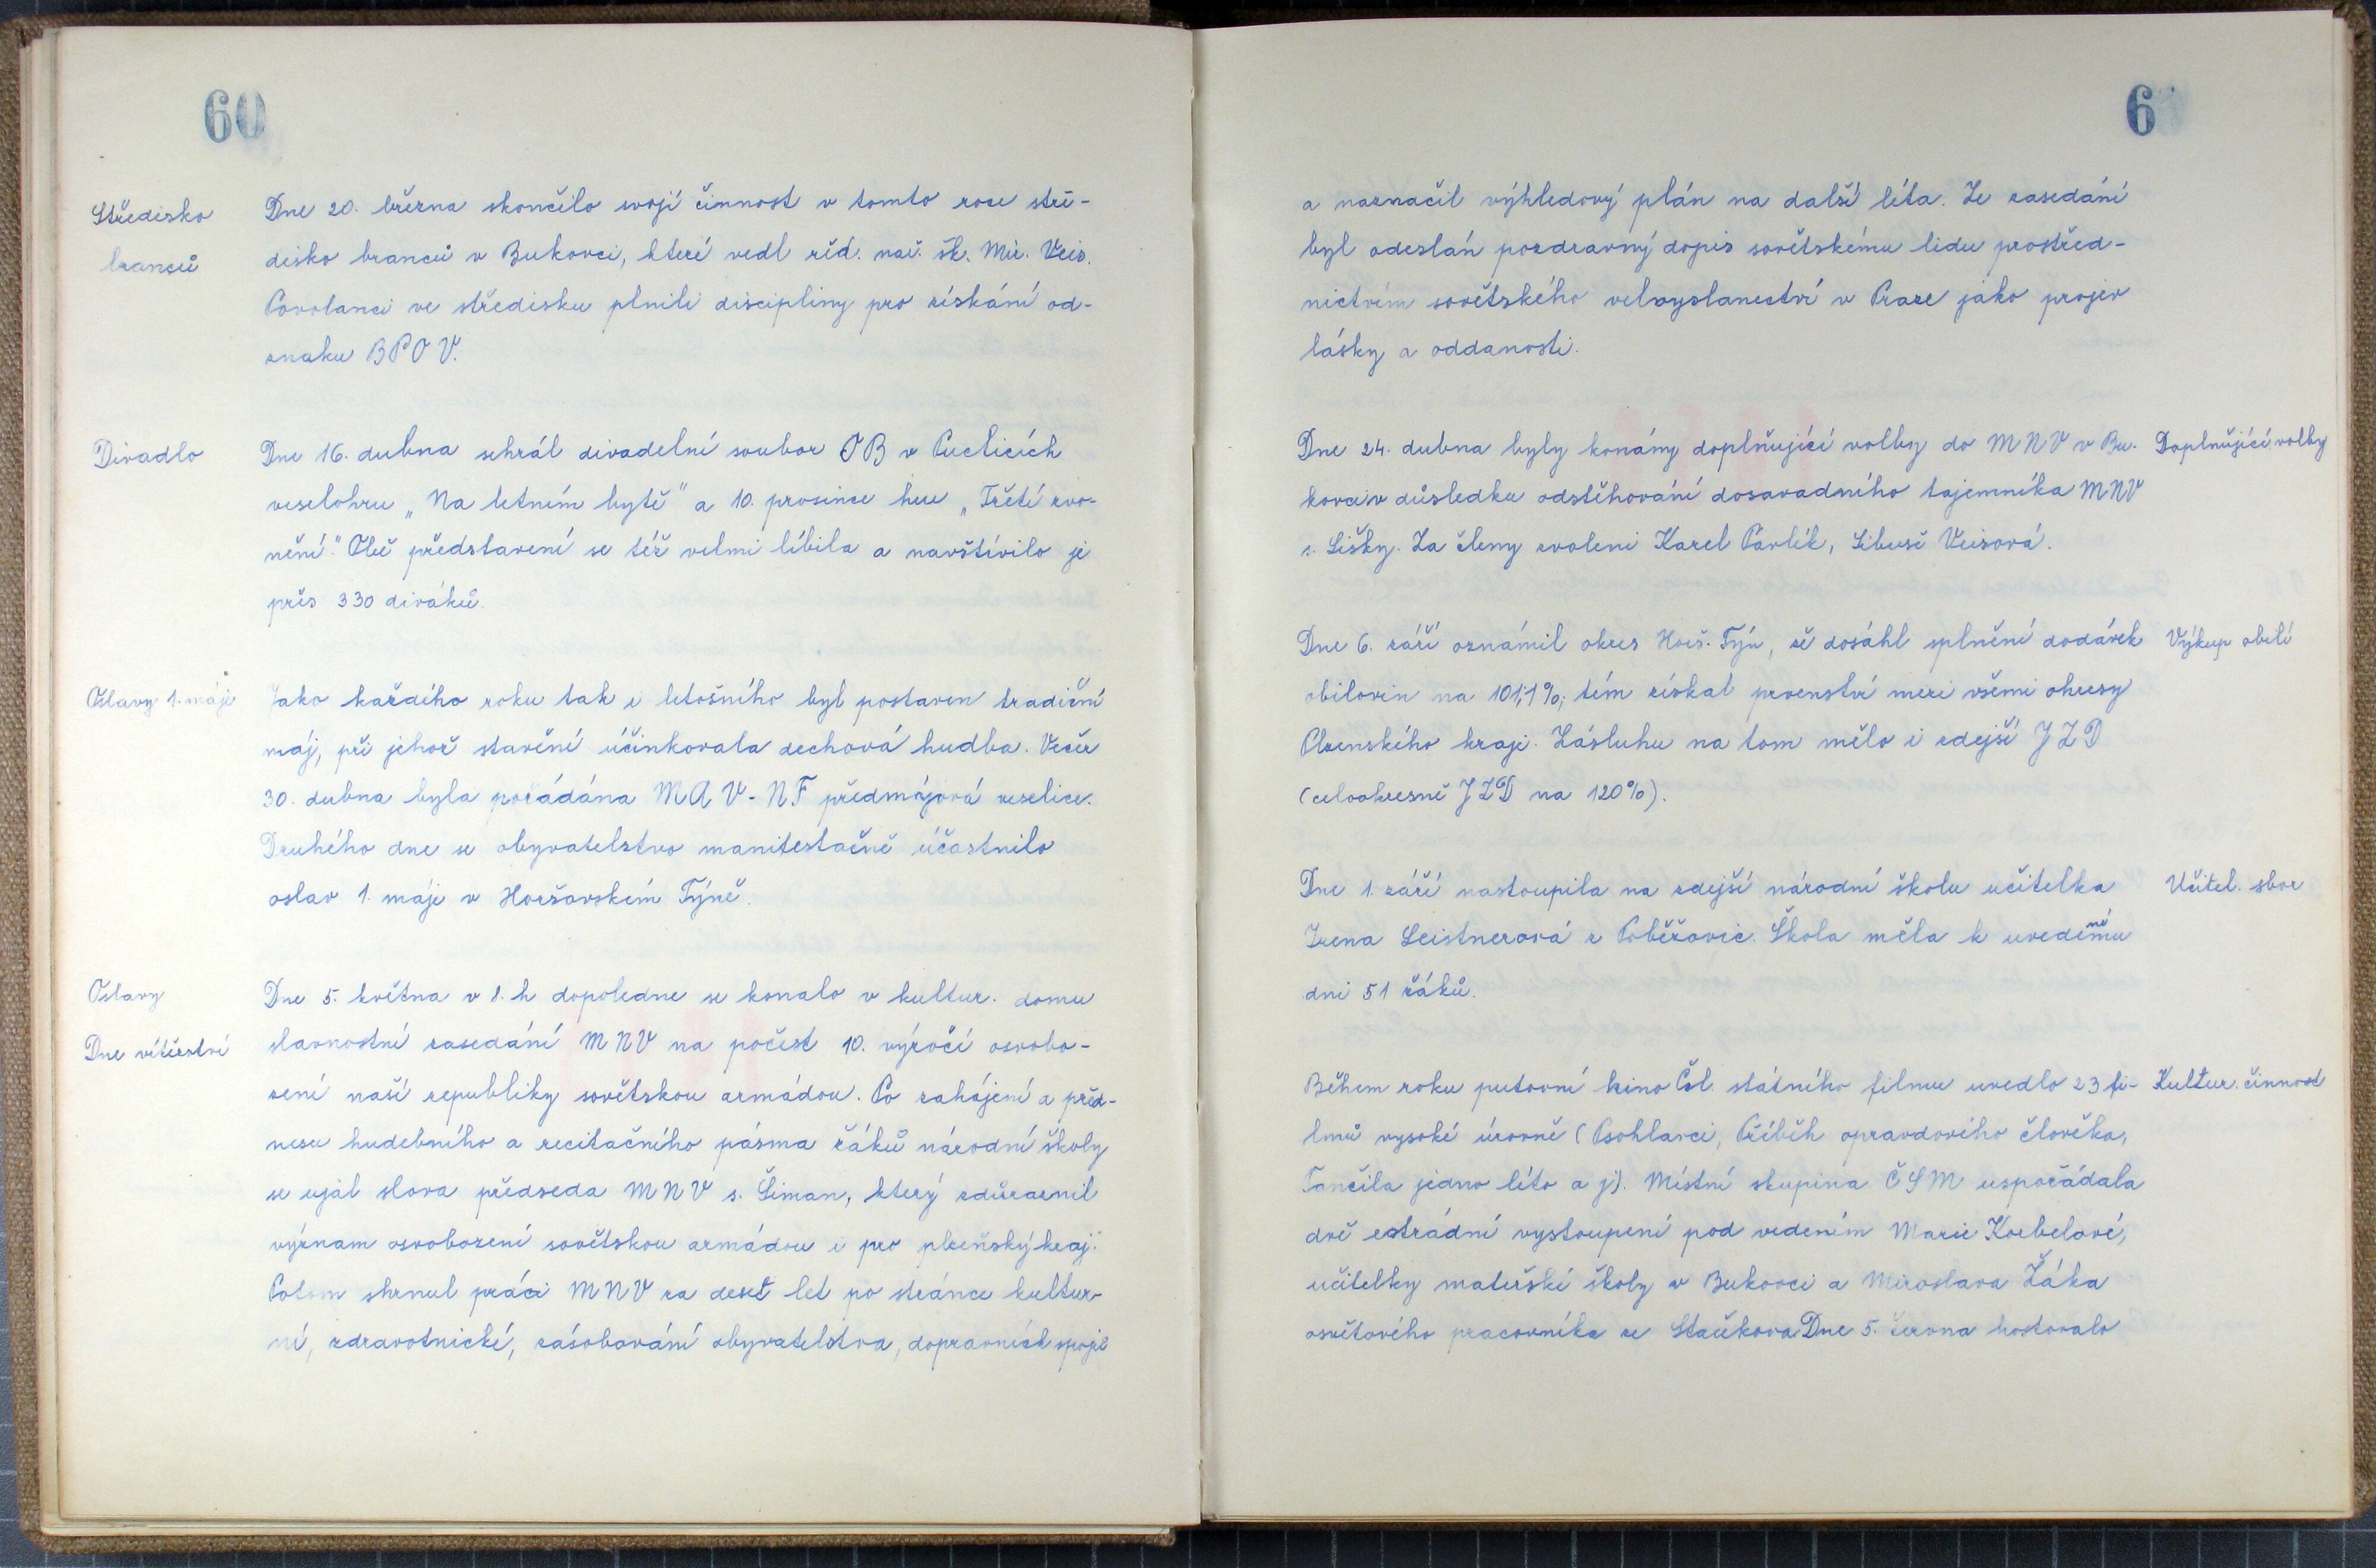 60
Středisko
branců
Dne 20. března skončilo svoji činnost v tomto roce stře-
disko branců v Bukovci, které vedl řed. nár. šk. Mir. Veis.
Povolanci ve středisku plnili discipliny pro získání od-
znaku BPOV.
Divadlo
Dne 16. dubna sehrál divadelní soubor OB v Puclicích
veselohru „Na letním bytě" a 10. prosince hru „Třetí zvo-
nění." Obě představení se též velmi líbila a navštívilo je
přes 330 diváků.
Oslavy 1. máje
Jako každého roku tak i letošního byl postaven tradiční
máj, při jehož stavění účinkovala dechová hudba. Večer
30. dubna byla pořádána MAV-NF předmájová veselice.
Druhého dne se obyvatelstvo manifestačně účastnilo
oslav 1. máje v Horšovském Týně.
Oslavy
Dne vítězství
Dne 5. května v 8. h dopoledne se konalo v kultur. domu
slavnostní zasedání MNV na počest 10. výročí osvobo-
zení naší republiky sovětskou armádou. Po zahájení a před-
nesu hudebního a recitačního pásma žáků národní školy
se ujal slova předseda MNV s. Šiman, který zdůraznil
význam osvobození sovětskou armádou i pro plzeňský kraj.
Potom shrnul práci MNV za deset let po stránce kultur-
ní, zdravotnické, zásobování obyvatelstva, dopravních spojů
6
a naznačil výhledový plán na další léta. Ze zasedání
byl odeslán pozdravný dopis sovětskému lidu prostřed-
nictvím sovětského velvyslanectví v Praze jako projev
lásky a oddanosti.
Dne 24. dubna byly konány doplňující volby do MNV v Bu-
kovci v důsledku odstěhování dosavadního tajemníka MNV
s. Lišky. Za členy zvoleni Karel Pavlík, Libuše Veisová.
Doplňující volby
Dne 6. září oznámil okres Horš. Týn, že dosáhl splnění dodávek
obilovin na 101,1%, tím získal prvenství mezi všemi okresy
Plzenského kraje. Zásluhu na tom mělo i zdejší JZD
(celookresně JZD na 120%).
Výkup obilí
Dne 1. září nastoupila na zdejší národní školu učitelka
Irena Leistnerová z Poběžovic. Škola měla k uvedenému
dni 51 žáků.
Učitel. sbor
Během roku putovní kino Čsl. státního filmu uvedlo 23 fi-
lmů vysoké úrovně (Psohlavci, Příběh opravdového člověka,
Tančila jedno léto a j.). Místní skupina ČSM uspořádala
dvě estrádní vystoupení pod vedením Marie Korbelové,
učitelky mateřské školy v Bukovci a Miroslava Žáka
osvětového pracovníka ze Staňkova. Dne 5. června hostovalo
Kultur. činnost